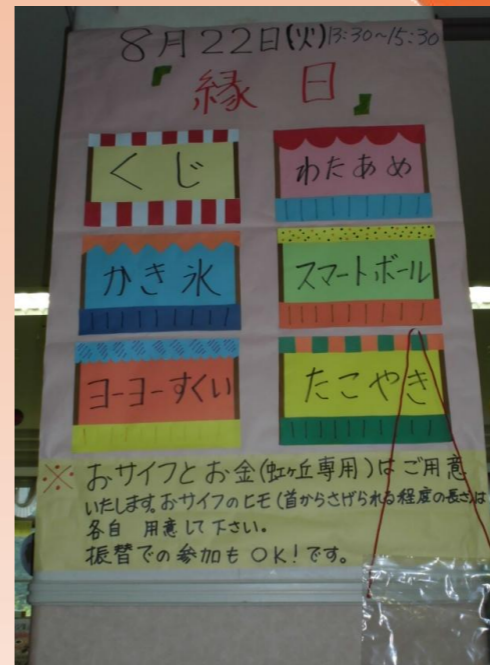 8月22日(火)13:30~15:30
『縁日』
くじ
わたあめ
かき氷
スマートボール
ヨーヨーすくい
たこやき
※おサイフとお金(虹ヶ丘専用)はご用意
いたします。おサイフのヒモ(首からさげられる程度の長さ)は
各自 用意して下さい。
振替での参加もOK!です。